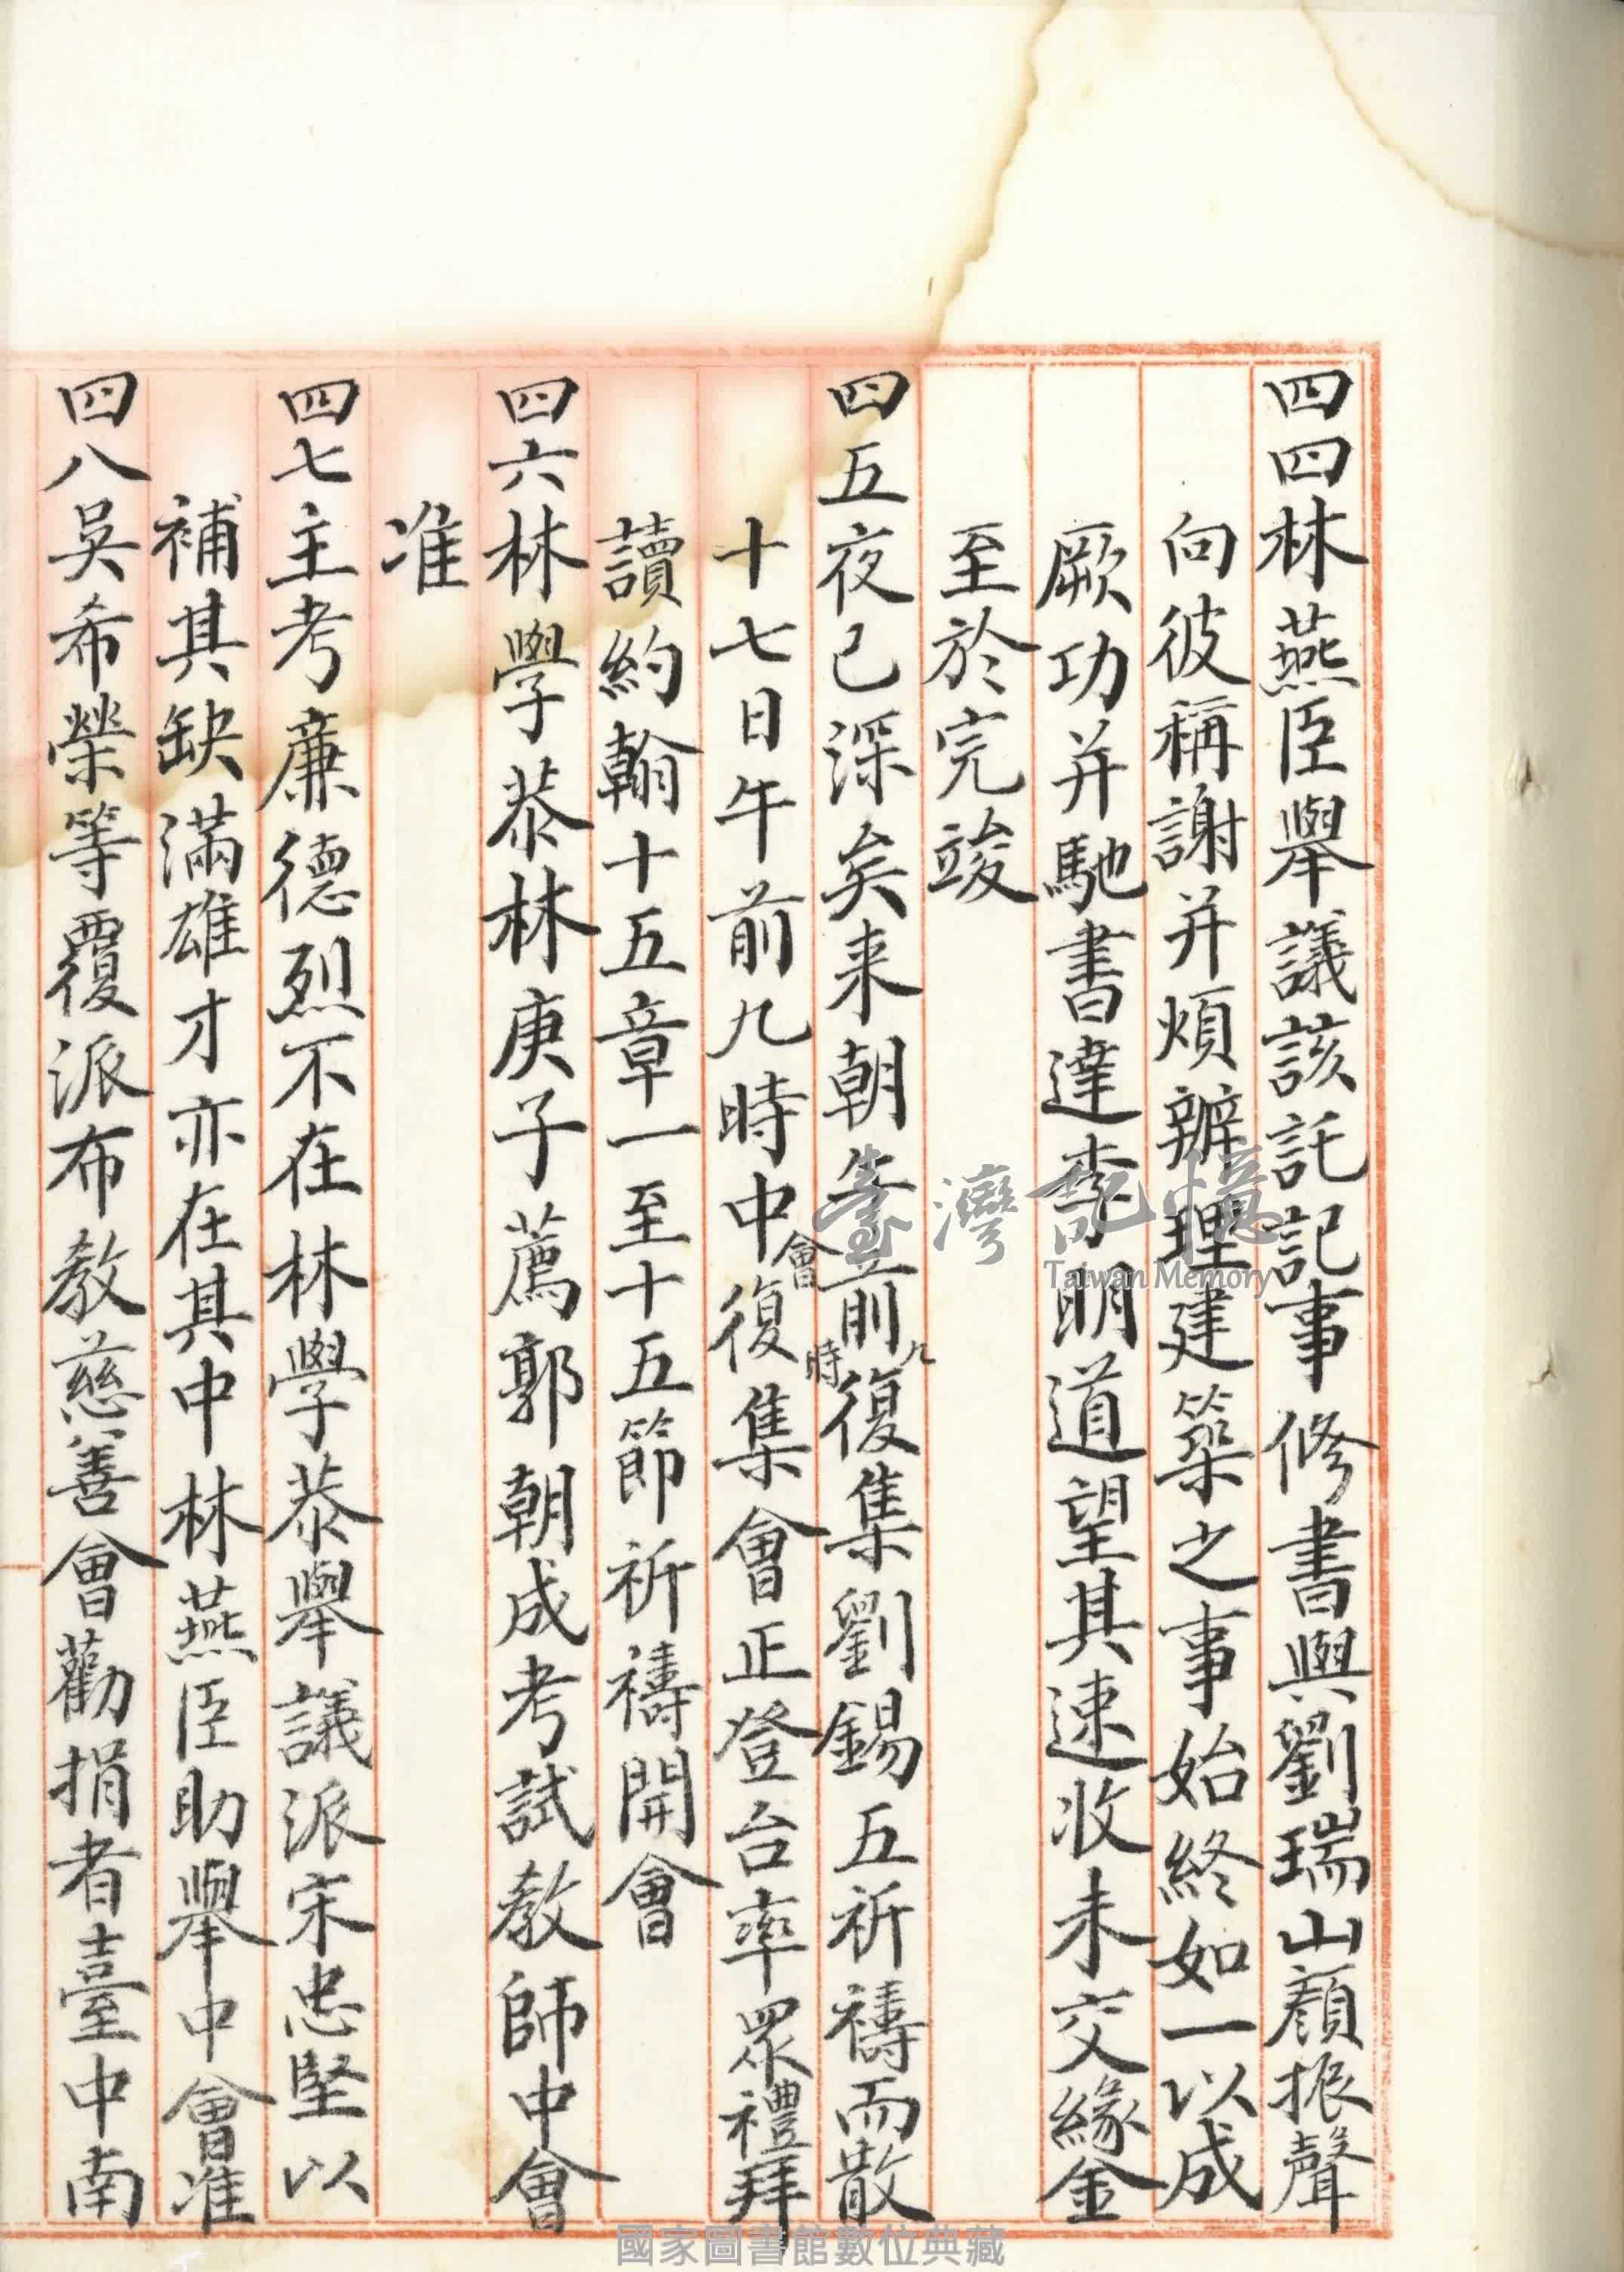 四四林燕臣舉議該託記事修書與劉瑞山顏振聲
向彼稱謝并煩辦理建築之事始終如一以成
厥功并馳書達李明道望其速收未交緣金
至於完竣
四五夜已深矣來朝午前九時復集劉錫五祈禱而散
十七日午前九時中會復集會正登台率眾禮拜
讀約翰十五章一至十五節祈禱開會
四六林學恭林庚子薦郭朝成考試教師中會
准
四七主考廉德烈不在林學恭舉議派宋忠堅以
補其缺滿雄才亦在其中林燕臣助舉中會准
四八吳希榮等覆派布教慈善會勸捐者臺中南
臺灣記憶
Taiwan Memory
國家圖書館數位典藏